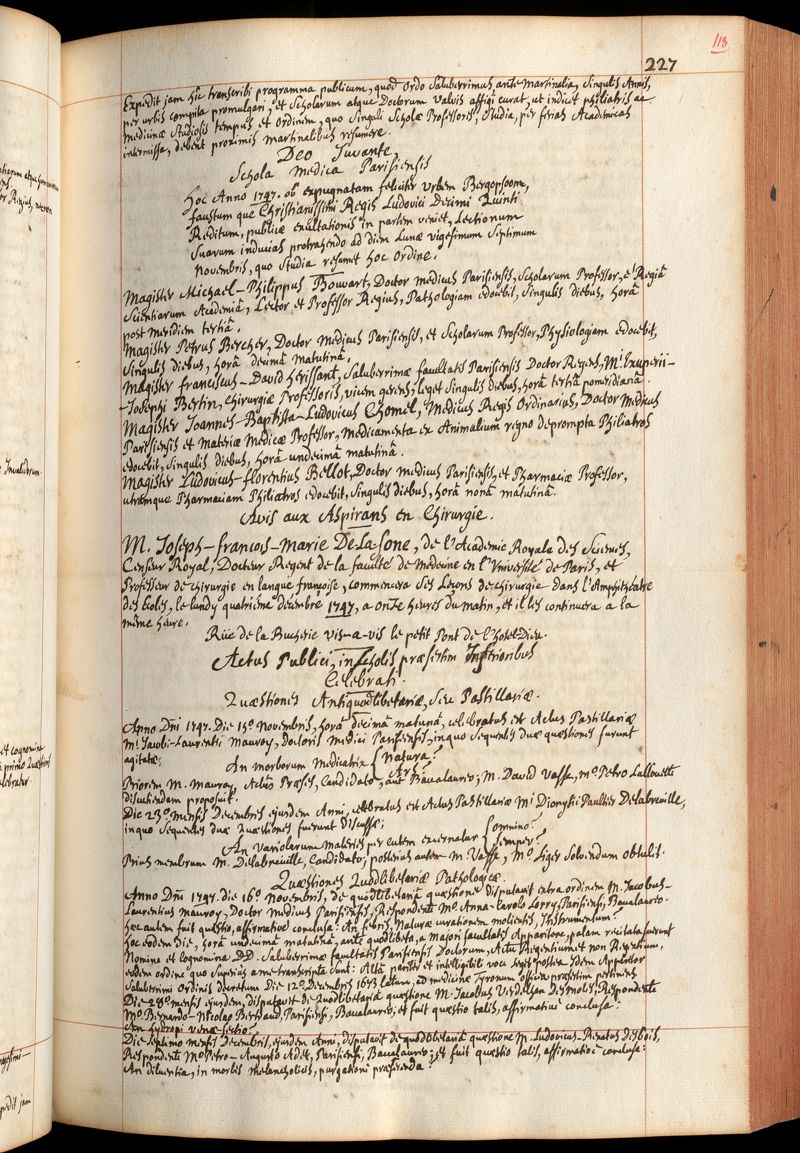 118
227
Expedit jam hîc transcribi programma publicum, quod Ordo Saluberrimus ante Martinalia, Singulis Annis,
per urbis compita promulgari, et Scholarum atque Doctorum valvis affigi curat, ut indicet philiatris ac
medicinæ Studiosis tempus et Ordinem, quo Singuli Scholæ Professores, Studia, per ferias Academicas
intermissa, debent proximis Martinalibus resumere.
Deo Juvante,
Schola Medica Parisiensis
Hoc Anno 1747. ob expugnatam feliciter Urbem Bergopsoom,
faustum que Christianissimi Regis Ludovici Decimi Quinti
Reditum, publicæ exultationis in partem veniet, Lectionum
Suarum inducias protrahendo ad diem Lunæ vigesimum Septimum
Novembris, quo Studia resumet hoc Ordine.
Magister Michael-Philippus Bouvart, Doctor medicus Parisiensis, Scholarum Professor, è Regiâ
Scientiarum Academiâ, Lector et Professor Regius, Pathologiam edocebit, Singulis diebus, horâ
post meridiem tertiâ.
Magister Petrus Bercher, Doctor Medicus Parisiensis, et Scholarum Professor, Physiologiam edocebit,
Singulis diebus, horâ decimâ matutinâ.
Magister franciscus-David herissant, Saluberrimæ facultatis Parisiensis Doctor Regens, Mi. Exuperii-
-Josephi Bertin, Chirurgiæ Professoris, vicem gerens, leget Singulis diebus, horâ tertiâ pomeridianâ.
Magister Joannes-Baptista-Ludovicus Chomel, Medicus Regis Ordinarius, Doctor Medicus
Parisiensis et Materiæ Medicæ Professor, Medicamenta ex Animalium regno deprompta Philiatros
edocebit, Singulis diebus, horâ undecimâ matutinâ.
Magister Ludovicus-florentius Bellot, Doctor medicus Parisiensis, et Pharmaciæ Professor,
utramque Pharmaciam Philiatros edocebit, Singulis diebus, horâ nonâ matutinâ.
Avis aux Aspirans en Chirurgie.
M. Joseph-francois-Marie De La Sone, de l'Academie Royale des Sciences,
Censeur Royal, Docteur Regent de la faculté de Medecine en l'Université de Paris, et
Professeur de chirurgie en langue françoise, commencera Ses Leçons de chirurgie dans l'Amphitheatre
des Ecoles, le lundy quatriéme decembre 1747, a onze heures du matin, et il les continuera a la
même heure.
Rüe de la Bucherie vis-a-vis le petit Pont de l'hotel-Dieu.
Actus Publici, in Scholis præsertim Inferioribus
Celebrati.
Quæstiones Antiquodlibetariæ, Seu Pastillariæ.
Anno Dñi 1747. Die 15º Novembris, horâ decimâ matutinâ, celebratus est Actus Pastillariæ
Mi. Jacobi-Laurentii Mauroy, doctoris Medici Parisiensis, in quo Sequentes duæ quæstiones fuerunt
agitatæ;
An morborum Medicatrix { Natura?
Priorem M. Mauroy, Actûs Præses, Candidato, aut Baccalaureo; M. David Vasse, Mo Petro Lallouette
discutiendam proposuit.
Die 23º mensis Decembris ejusdem Anni, celebratus est Actus Pastillariæ Mi Dionysii Paultier Delabreuille,
in quo Sequentes duæ Quæstiones fuerunt discussæ;
An Variolarum materies per cutem excernatur { omnino? Semper?
Prius membrum M. Delabreuille, Candidato; posterius autem M. Vasse, Mo. Liger Solvendum obtulit.
Quæstiones Quodlibetariæ Pathologicæ.
Anno Dñi 1747. die 16º Novembris, de quodlibetariâ quæstione disputavit extra ordinem M. Jacobus-
Laurentius Mauroy, Doctor Medicus Parisiensis, Respondente Mo. Anna-Carolo Lorry, Parisiensi, Baccalaureo.
hæc autem fuit quæstio, affirmativè conclusa: An febris, Naturæ curationem molientis, Instrumentum?
hoc eodem die, horâ undecimâ matutinâ, ante quodlibeta, a Majori facultatis Apparitore, palam recitata fuerunt
Nomina et Cognomina DD. Saluberrimæ facultatis Parisiensis Doctorum, Actu Regentium et non Regentium,
eodem ordine quo Superius a me transcripta Sunt: Altâ pariter et intelligibili voce legit postea Idem Apparitor
Saluberrimi Ordinis Decretum Die 12º Decembris 1673 latum, ad medicinæ Tyronum officia præsertim pertinens.
Die 28º mensis ejusdem, disputavit de Quodlibetariâ quæstione M. Jacobus Verdelhan Desmoles, Respondente
Mo. Bernardo-Nicolao Bertrand, Parisiensi, Baccalaureo; et fuit quæstio talis, affirmativè conclusa:
An hydropi venæ-Sectio?
Die Septimo mensis Decembris, ejusdem Anni, disputavit de quodlibetariâ quæstione M. Ludovicus-Renatus Desbois,
Respondente Mo. Petro-Augusto Adet, Parisiensi, Baccalaureo; et fuit quæstio talis, affirmativè conclusa:
An diluentia, in morbis Melancholicis, purgationi præferenda?